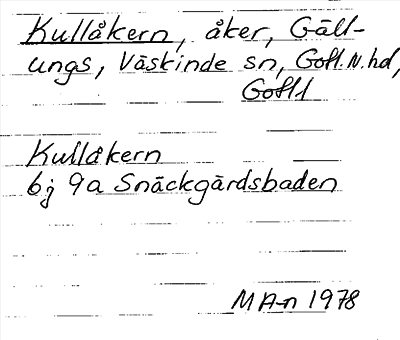 Kullåkern, åker, Gäll-
ungs, Väskinde sn, Gotl. N. hd,
Gotl
Kullåkern
6j 9a Snäckgärdsbaden
MA-n 1978